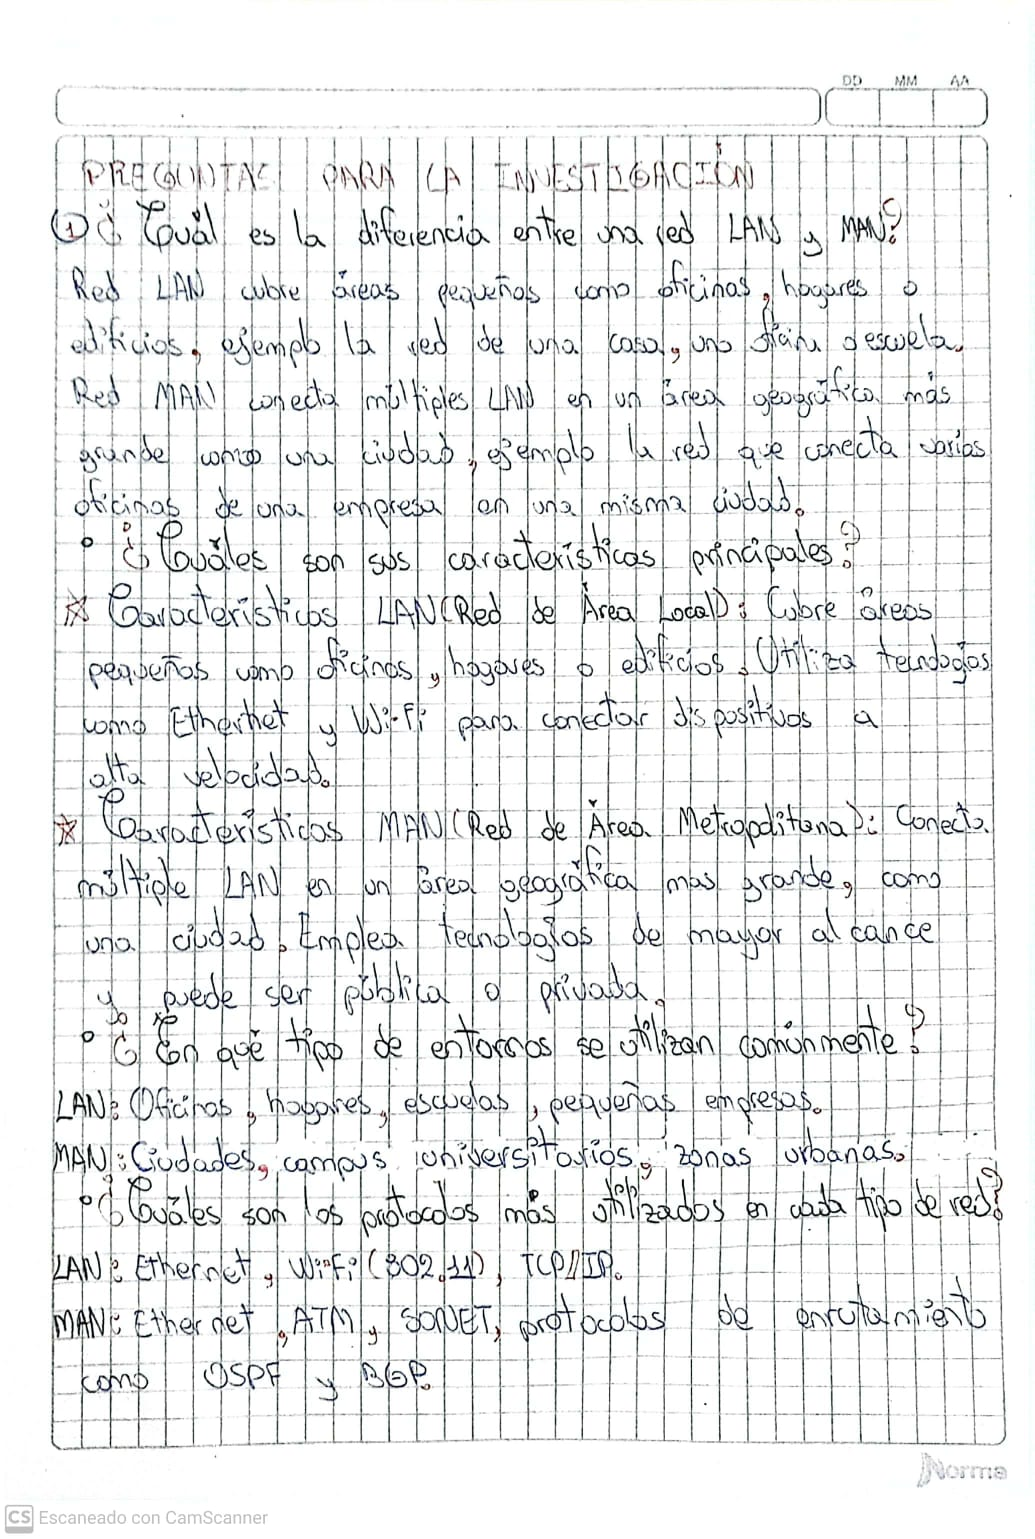 DD MM AA
PREGUNTAS PARA LA INVESTIGACIÓN
① ¿Cuál es la diferencia entre una red LAN y MAN?
Red LAN cubre áreas pequeñas como oficinas, hogares o
edificios, ejemplo la red de una casa, una oficina o escuela.
Red MAN conecta múltiples LAN en un área geográfica más
grande como una ciudad, ejemplo la red que conecta varias
oficinas de una empresa en una misma ciudad.
• ¿Cuáles son sus características principales?
☆ Características LAN (Red de Área Local): Cubre áreas
pequeñas como oficinas, hogares o edificios. Utiliza tecnologías
como Ethernet y Wi-Fi para conectar dispositivos a
alta velocidad.
☆ Características MAN (Red de Área Metropolitana): Conecta
múltiple LAN en un área geográfica mas grande, como
una ciudad. Emplea tecnologías de mayor alcance
y puede ser pública o privada.
• ¿En qué tipo de entornos se utilizan comúnmente?
LAN: Oficinas, hogares, escuelas, pequeñas empresas.
MAN: Ciudades, campus universitarios, zonas urbanas.
• ¿Cuáles son los protocolos más utilizados en cada tipo de red?
LAN: Ethernet, Wi-Fi (802.11), TCP/IP.
MAN: Ethernet, ATM, SONET, protocolos de enrutamiento
como OSPF y BGP.
Norma
CS Escaneado con CamScanner